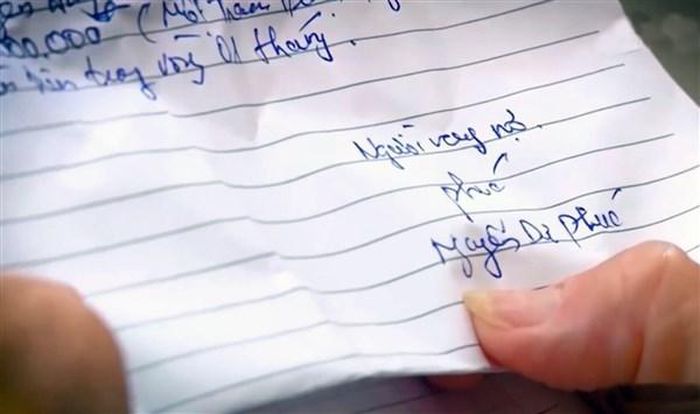 00.000 (Một trăm
trong vòng 01 tháng.
Người vay nợ.
phúc
Nguyễn Du Phúc